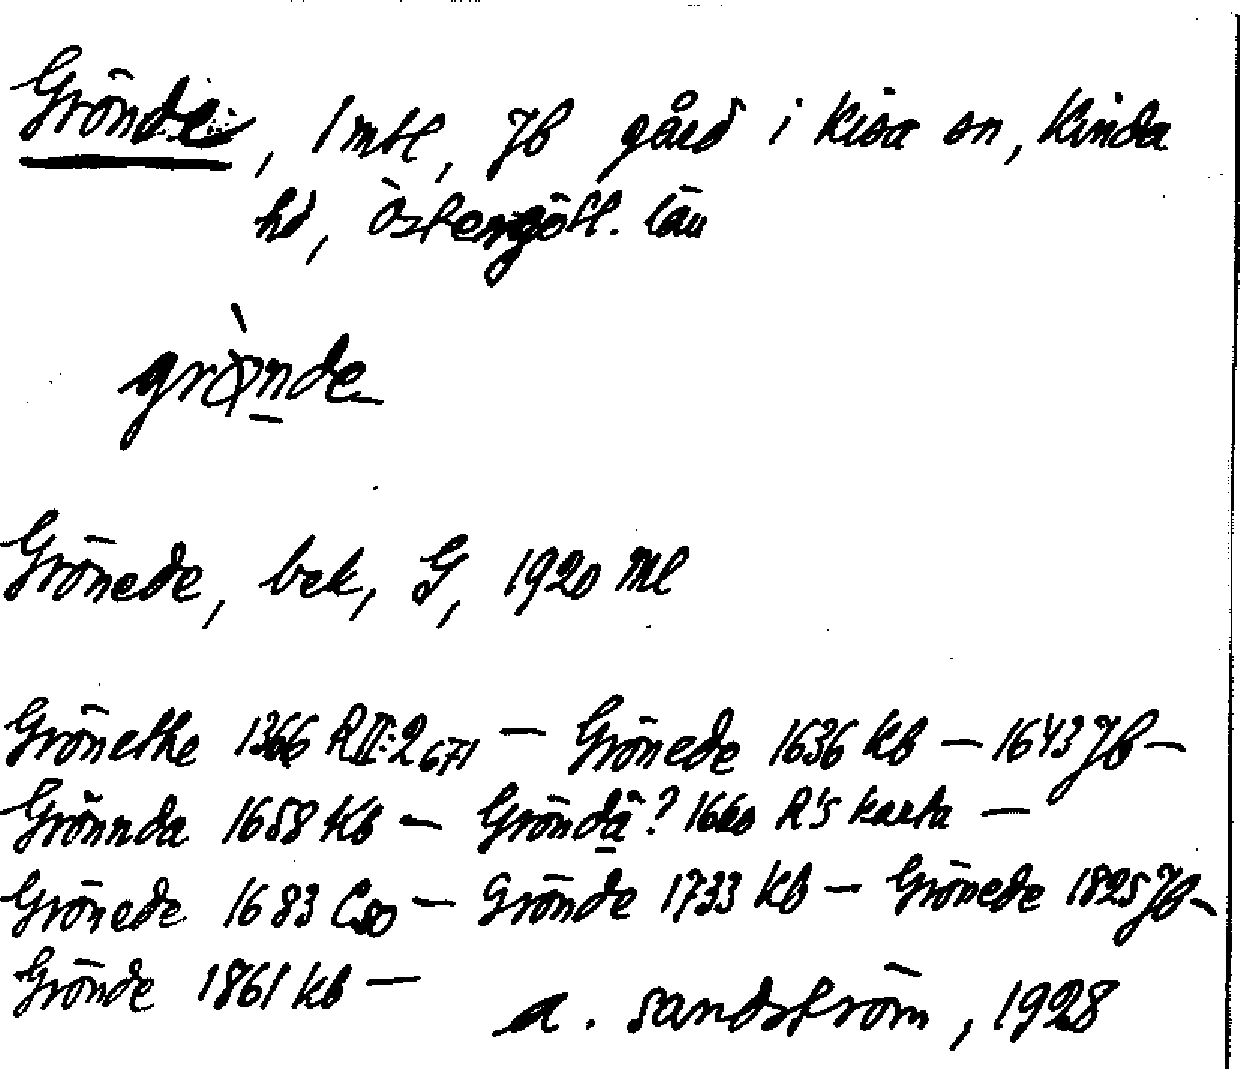 Grönde, 1 mtl, Jb gård i Kisa sn, Kinda
hd, Östergötl. län
grønde
Grönede, bek, G, 1920 Ml
Grönethe 1366 RII:2 671 — Grönede 1636 Kb — 1643 Jb —
Grönnda 1658 Kb — Gröndä? 1660 R's karta —
Grönede 1683 C80 — Grönde 1733 Kb — Grönede 1825 Jb —
Grönde 1861 Kb —
A. Sandström, 1928